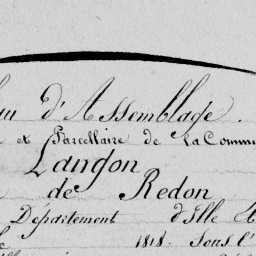 d'Assemblage.
et Parcellaire de la Commu
Langon
de Redon
Département d'Ille
1818. Sous l'